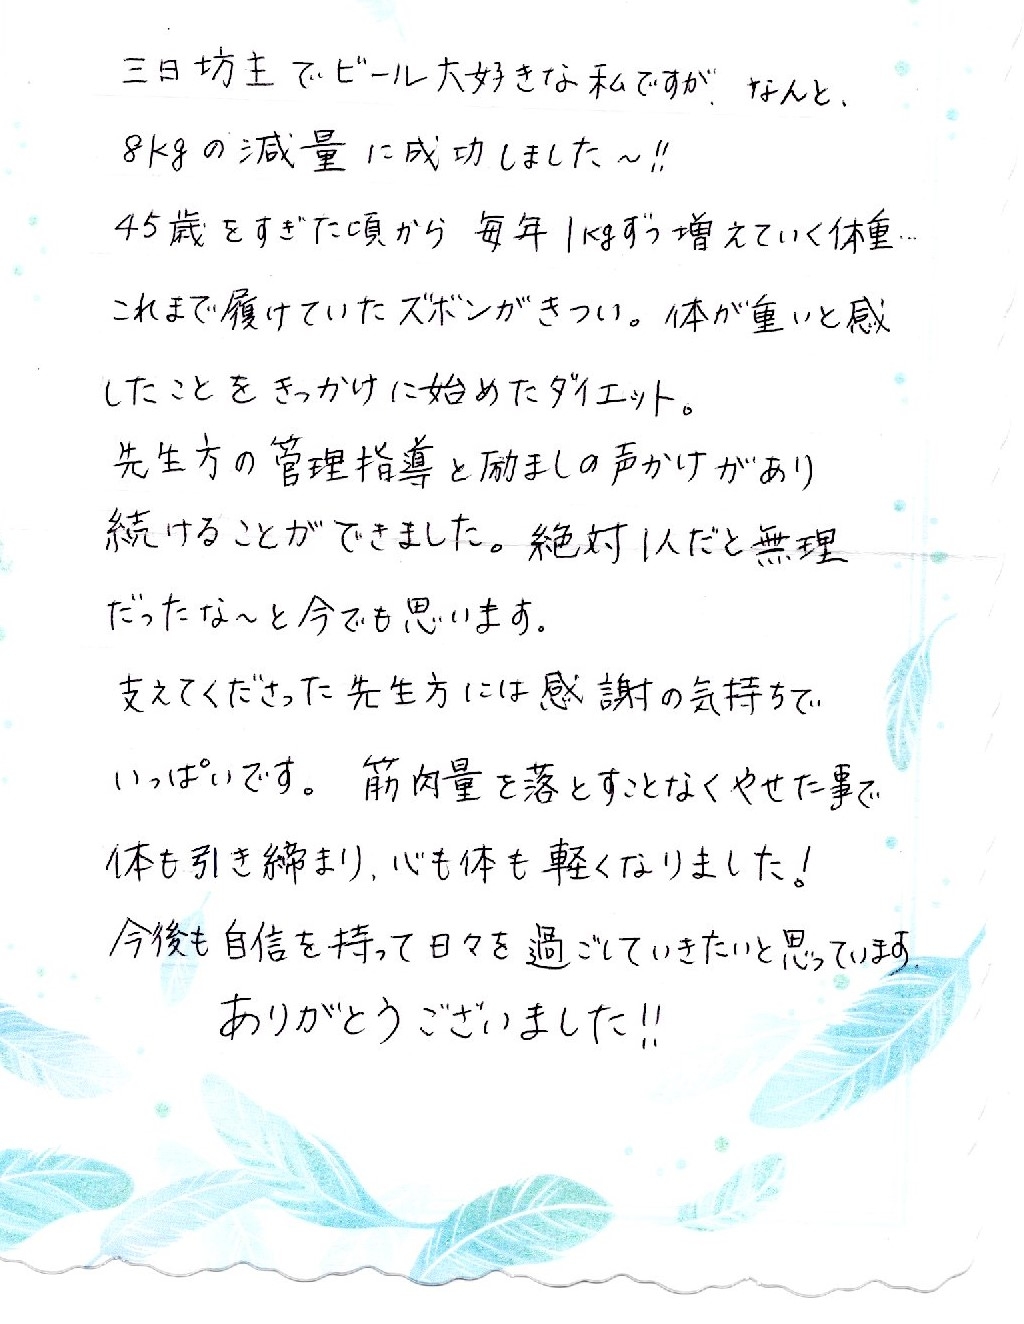 三日坊主でビール大好きな私ですが、なんと、
8kgの減量に成功しました～!!
45歳をすぎた頃から 毎年1kgずつ増えていく体重…
これまで履けていたズボンがきつい。体が重いと感
したことをきっかけに始めたダイエット。
先生方の管理指導と励ましの声かけがあり
続けることができました。絶対1人だと無理
だったな～と今でも思います。
支えてくださった先生方には感謝の気持ちで
いっぱいです。 筋肉量を落とすことなくやせた事で
体も引き締まり、心も体も軽くなりました！
今後も自信を持って日々を過ごしていきたいと思っています。
ありがとうございました!!